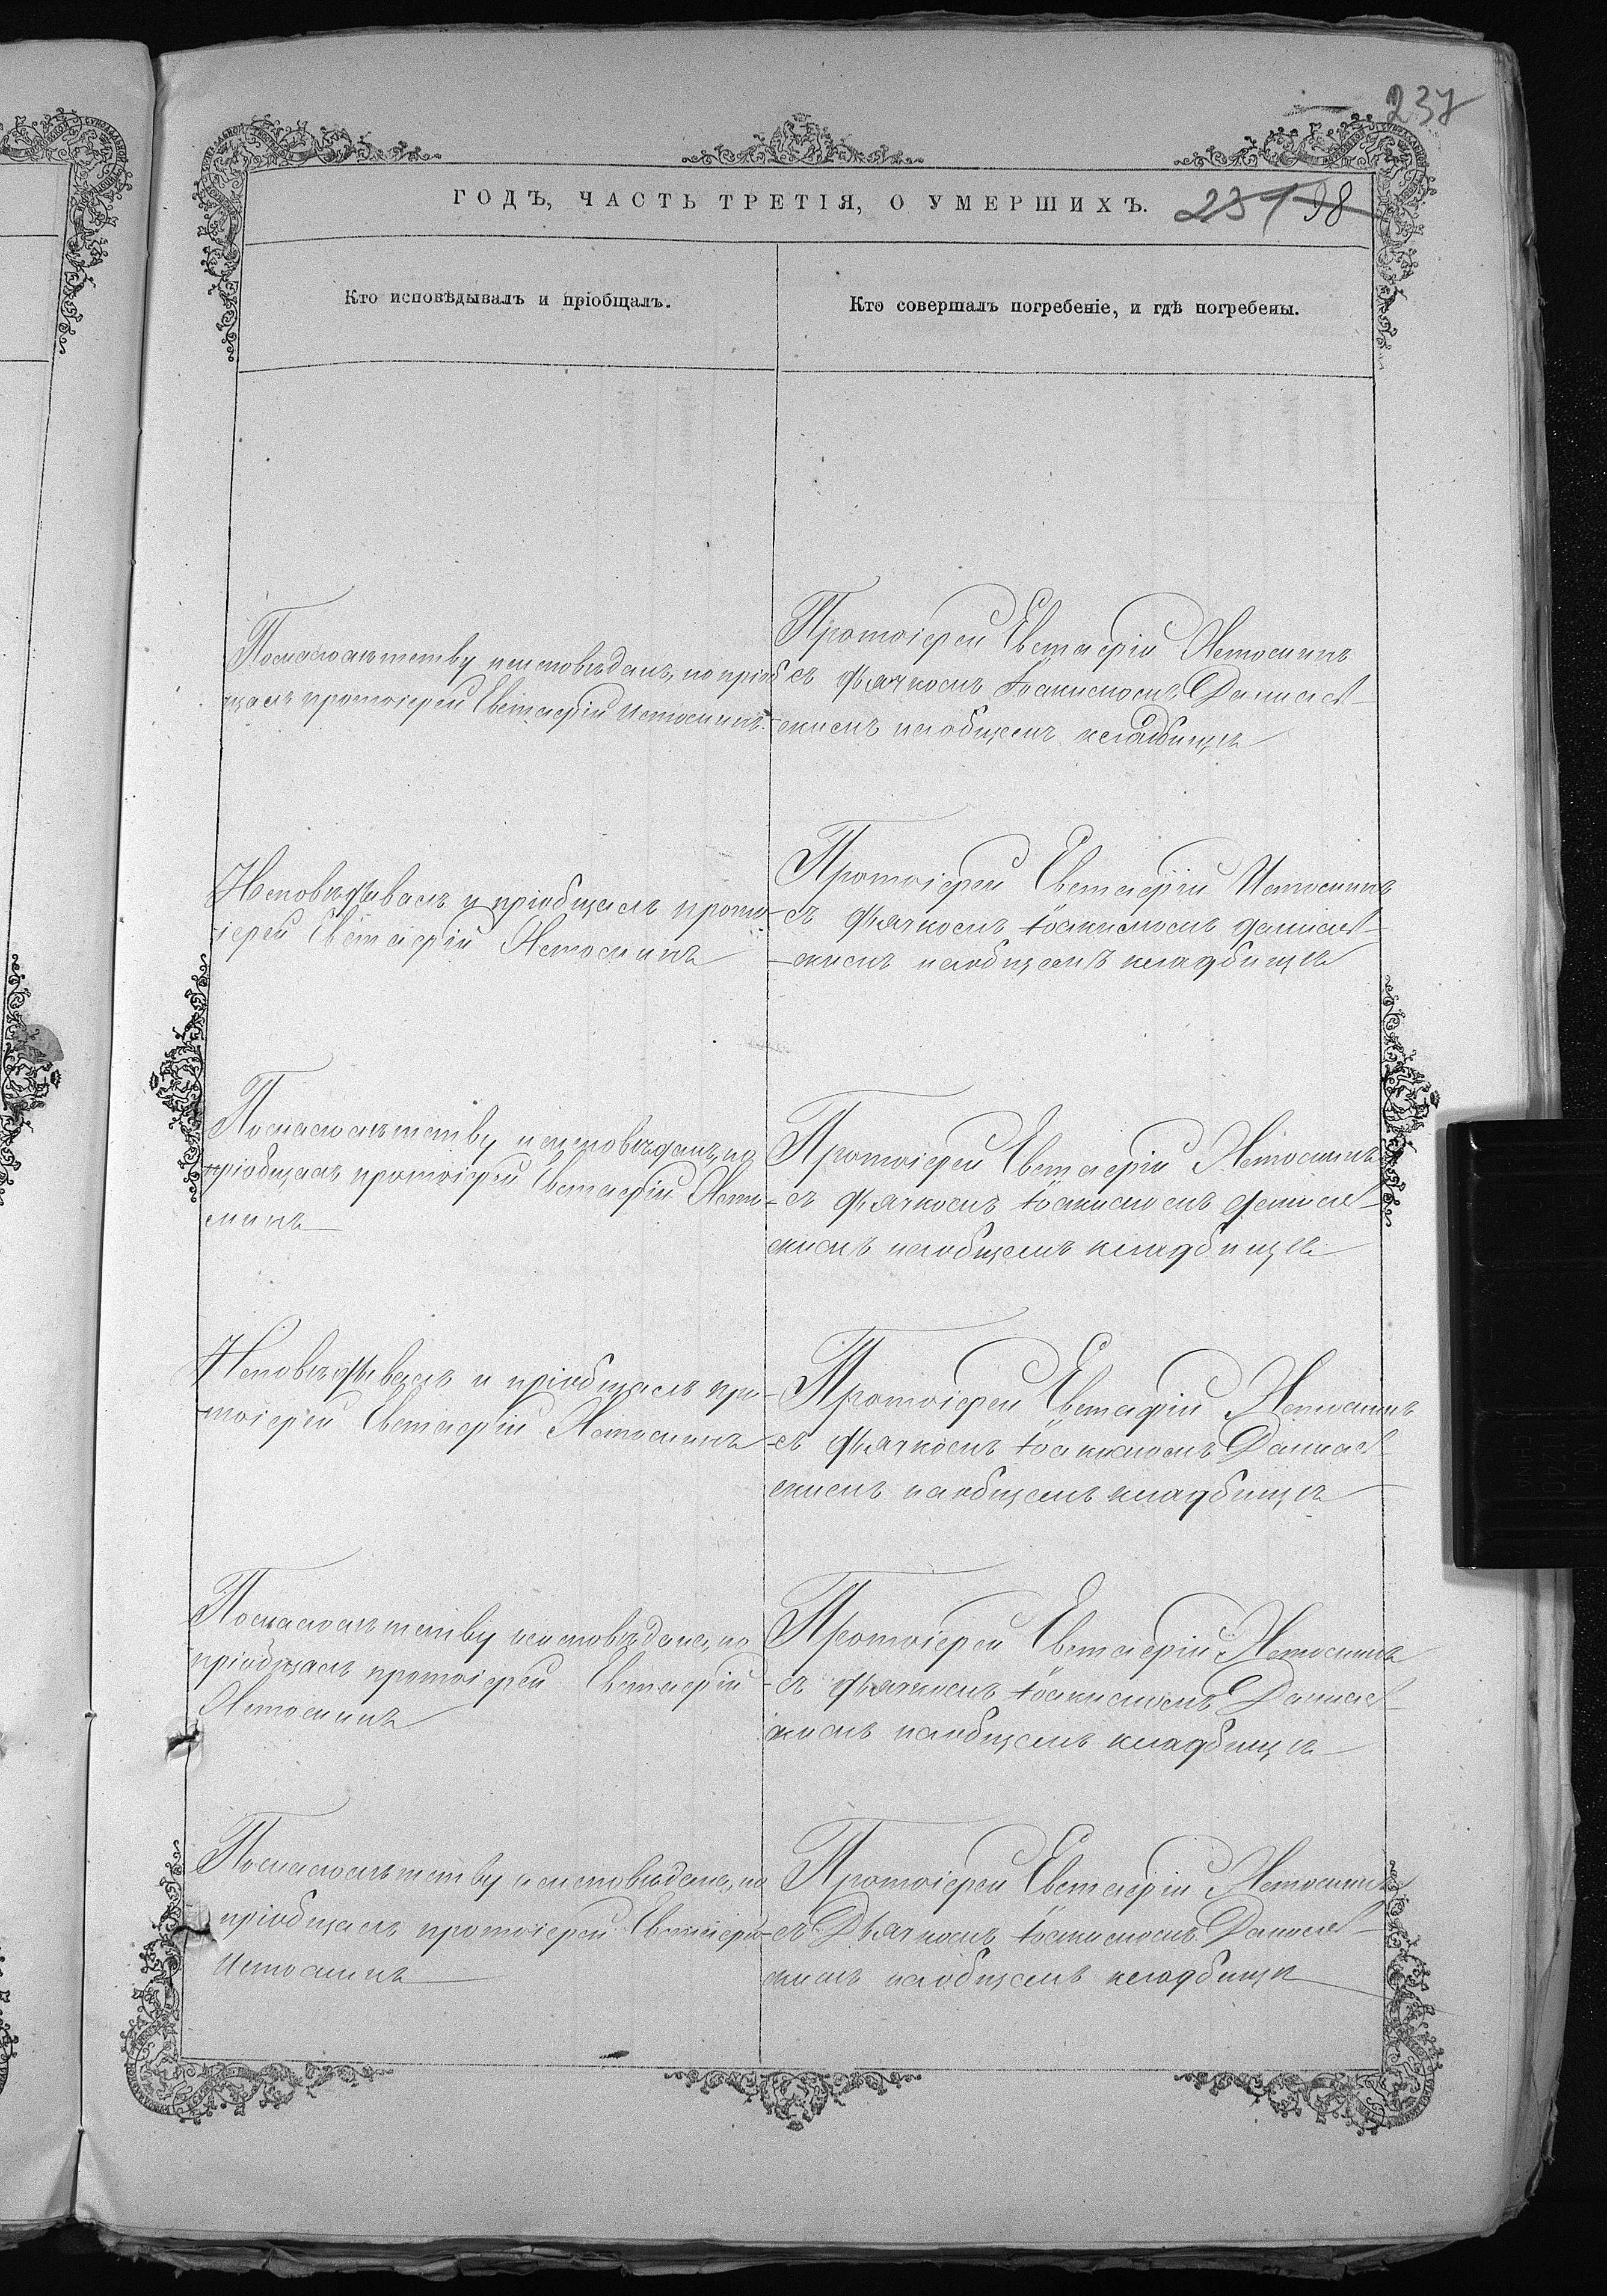 237
ГОДЪ, ЧАСТЬ ТРЕТІЯ, О УМЕРШИХЪ.
231 98
Кто исповѣдывалъ и пріобщалъ.
Кто совершалъ погребеніе, и гдѣ погребены.
Помалолѣтству неисповѣданъ, но пріоб
щалъ протоіерей Евстаѳій Истоминъ.
Протоіерей Евстаѳій Истоминъ
съ дьячкомъ Іоакимомъ Даниле-
скимъ наобщемъ кладбищѣ
Исповѣдывалъ и пріобщалъ прото-
іерей Евстаѳій Истоминъ
Протоіерей Евстаѳій Истоминъ
съ дьячкомъ Іоакимомъ даниле-
скимъ наобщемъ кладбищѣ
Помалолѣтству неисповѣданъ, но
пріобщалъ протоіерей Евстаѳій Исто-
минъ
Протоіерей Евстаѳій Истоминъ
съ дьячкомъ Іоакимомъ даниле-
скимъ наобщемъ кладбищѣ
Исповѣдывалъ и пріобщалъ про-
тоіерей Евстаѳій Истоминъ
Протоіерей Евстаѳій Истоминъ
съ дьячкомъ Іоакимомъ Даниле-
скимъ наобщемъ кладбищѣ
Помалолѣтству неисповѣдана, но
пріобщалъ протоіерей Евстаѳій
Истоминъ
Протоіерей Евстаѳій Истоминъ
съ дьячкомъ Іоакимомъ Даниле-
скимъ наобщемъ кладбищѣ
Помалолѣтству неисповѣдана, но
пріобщалъ протоіерей Евстаѳій
Истоминъ
Протоіерей Евстаѳій Истоминъ
съ Дьячкомъ Іоакимомъ Даниле-
скимъ наобщемъ кладбищѣ